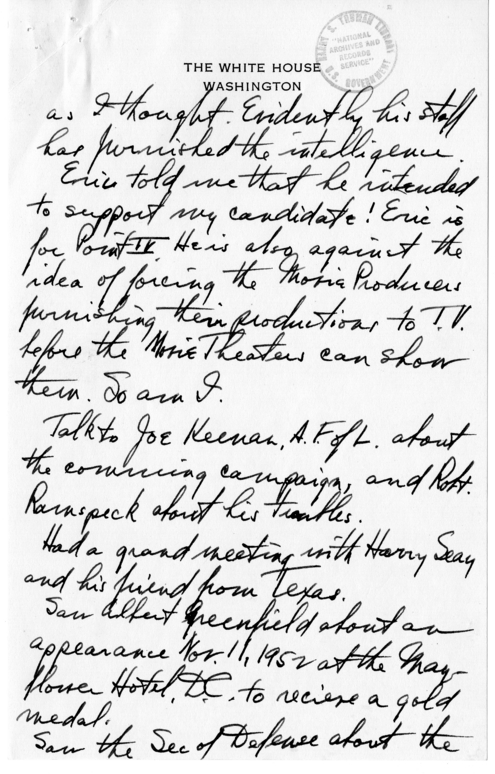 HARRY S. TRUMAN LIBRARY
"NATIONAL
ARCHIVES AND
RECORDS
SERVICE"
U.S. GOVERNMENT
THE WHITE HOUSE
WASHINGTON
as I thought. Evidently his staff
has furnished the intelligence.
Eric told me that he intended
to support my candidate! Eric is
for Point IV. He is also against the
idea of forcing the Movie Producers
furnishing their productions to T.V.
before the Movie Theaters can show
them. So am I.
Talk to Joe Keenan, A.F. of L. about
the comming campaign, and Robt.
Ramspeck about his troubles.
Had a grand meeting with Harry Seay
and his friend from Texas.
Saw Albert Greenfield about an
appearance Nov. 11, 1952 at the May-
flower Hotel, D.C. to recieve a gold
medal.
Saw the Sec of Defense about the